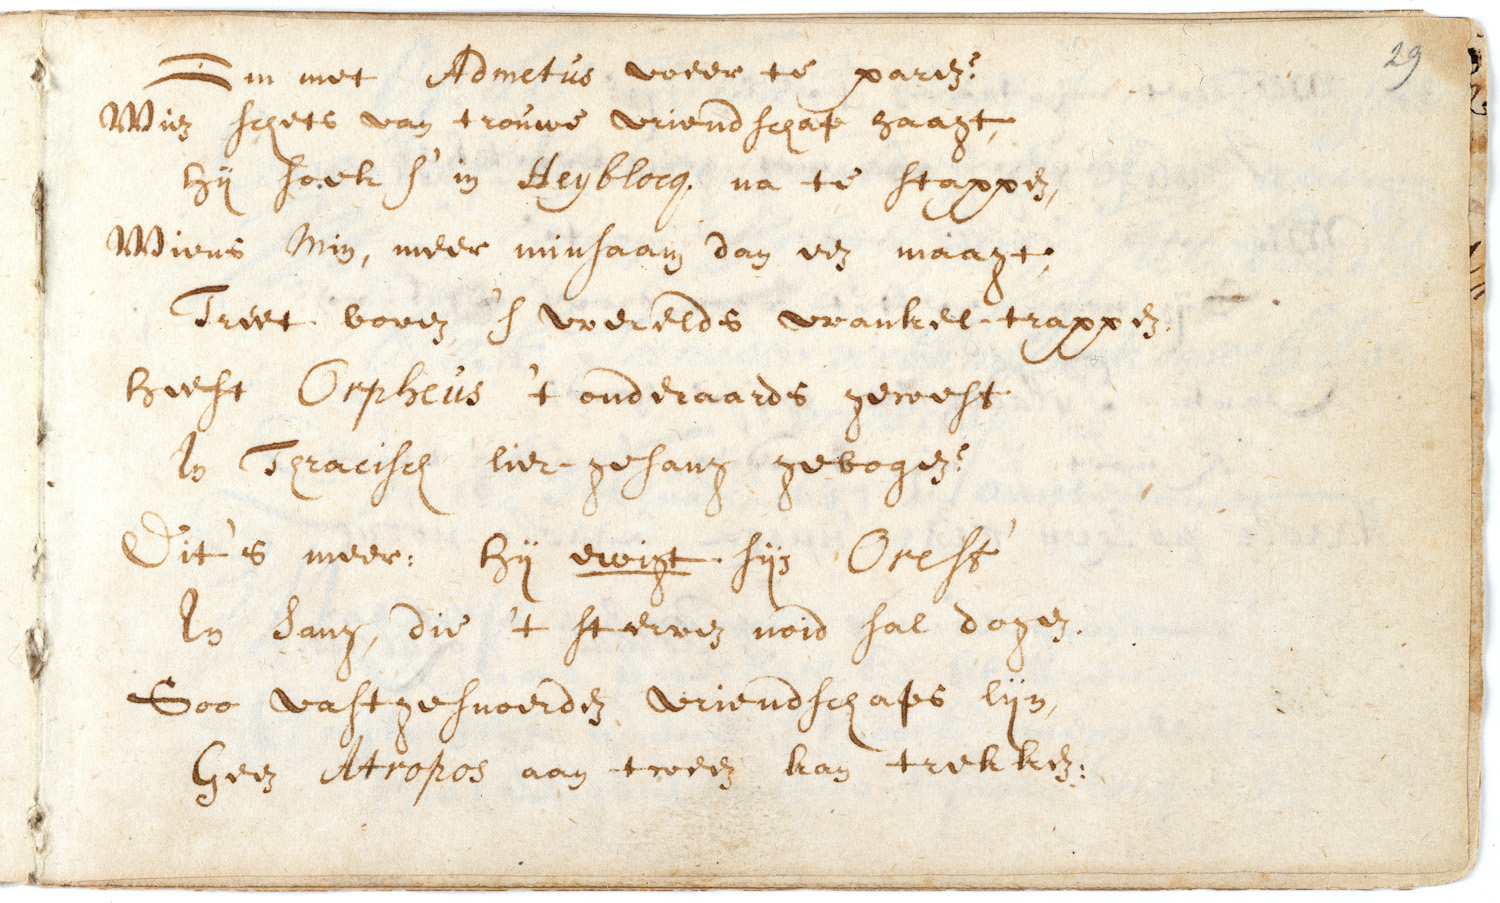 29
Om met Admetus weer te paren?
Wien schets van trouwe vriendschap haagt,
Hij soek s' in Heyblocq. na te stappen,
Wiens Min, meer minsaam dan een maagt,
Treet boven 's werelds wankel-trappen.
Heeft Orpheus 't onderaards geweest
In Thracisch lier-gesang gebogen?
Dit's meer: Hij ewigt sijn Orest'
In Sang, die 't sterven noid sal dogen.
Soo vastgesnoerden vriendschaps lijn,
Geen Atropos aan tween kan trekken: